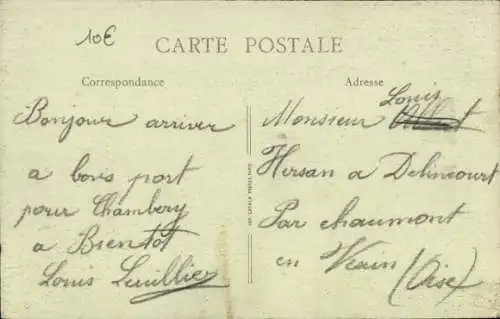 10€
CARTE POSTALE
Correspondance
Bonjour arriver
a bons port
pour Chambery
a Bientot
Louis Lecuillier
Adresse
Louis
Monsieur
Hersan a Delincourt
Par chaumont
en Vexin (Oise)